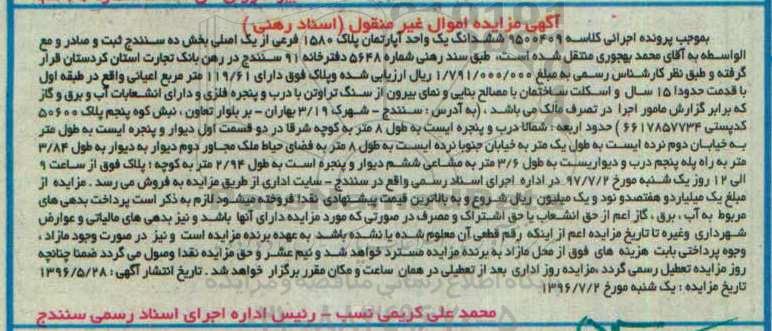 آگهی مزایده اموال غیر منقول (اسناد رهنی)
بموجب پرونده اجرائی کلاسه ۹۵۰۰۴۰۹ ششدانگ یک واحد آپارتمان پلاک ۱۵۸۰ فرعی از یک اصلی بخش ده سنندج ثبت و صادر و مع
الواسطه به آقای محمد بهجوری منتقل شده است، طبق سند رهنی شماره ۵۶۴۸ دفترخانه ۹۱ سنندج در رهن بانک تجارت استان کردستان قرار
گرفته و طبق نظر کارشناس رسمی به مبلغ ۱/۷۹۱/۰۰۰/۰۰۰ ریال ارزیابی شده وپلاک فوق دارای ۱۱۹/۶۱ متر مربع اعیانی واقع در طبقه اول
با قدمت حدودا ۱۵ سال و اسکلت ساختمان با مصالح بنایی و نمای بیرون از سنگ تراوتن با درب و پنجره فلزی و دارای انشعابات آب و برق و گاز
که برابر گزارش مامور اجرا در تصرف مالک می باشد . (به آدرس : سنندج - شهرک ۳/۱۹ بهاران - بر بلوار تعاون ، نبش کوه پنجم پلاک ۵۰۶۰۰
کدپستی ۶۶۱۷۸۵۷۷۳۴ ) حدود اربعه : شمالا درب و پنجره ایست به طول ۸ متر به کوچه شرقا در دو قسمت اول دیوار و پنجره ایست به طول متر
به خیابان دوم نرده ایست به طول یک متر به خیابان جنوبا نرده ایست به طول ۸ متر به فضای حیاط ملک مجاور دوم دیوار به دیوار به طول ۳/۸۴
متر به راه پله پنجم درب و دیواریست به طول ۳/۶ متر به مشاعی ششم دیوار و پنجره است به طول ۲/۹۴ متر به کوچه ؛ پلاک فوق از ساعت ۹
الی ۱۲ روز یک شنبه مورخ ۹۷/۷/۲ در اداره اجرای اسناد رسمی واقع در سنندج - سایت اداری از طریق مزایده به فروش می رسد . مزایده از
مبلغ یک میلیاردو هفتصدو نود و یک میلیون ریال شروع و به بالاترین قیمت پیشنهادی نقدا فروخته میشود لازم به ذکر است پرداخت بدهی های
مربوط به آب ، برق ، گاز اعم از حق انشعاب یا حق اشتراک و مصرف در صورتی که مورد مزایده دارای آنها باشد و نیز بدهی های مالیاتی و عوارض
شهرداری وغیره تا تاریخ مزایده اعم از اینکه رقم قطعی آن معلوم شده یا نشده باشد به عهده برنده مزایده است و نیز در صورت وجود مازاد ،
وجوه پرداختی بابت هزینه های فوق از محل مازاد به برنده مزایده مسترد خواهد شد و نیم عشر و حق مزایده نقدا وصول می گردد ضمنا چنانچه
روز مزایده تعطیل رسمی گردد ،مزایده روز اداری بعد از تعطیلی در همان ساعت و مکان مقرر برگزار خواهد شد . تاریخ انتشار آگهی : ۱۳۹۶/۵/۲۸
تاریخ مزایده : یک شنبه مورخ ۱۳۹۶/۷/۲
محمد علی کریمی نسب - رئیس اداره اجرای اسناد رسمی سنندج